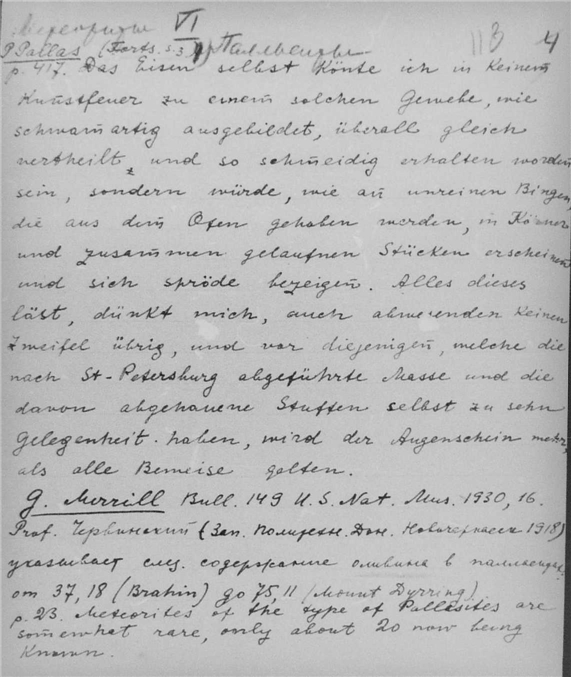 Метеориты VI
P. Pallas (Forts. s. 3) Палласиты 113 4
p. 417. Das Eisen selbst könte ich in keinem
Kunstfeuer zu einem solchen Gewebe, wie
schwam̄artig ausgebildet, überall gleich
vertheilt, und so schmeidig erhalten worden
sein, sondern würde, wie an unreinen Bingen,
die aus dem Ofen gehoben werden, in Körner
und zusammen gelaufnen Stücken erscheinen
und sich spröde bezeigen. Alles dieses
läst, dünkt mich, auch abwesenden keinen
Zweifel übrig, und vor diejenigen, welche die
nach St-Petersburg abgeführte Masse und die
davon abgehauene Stuffen selbst zu sehn
Gelegenheit haben, wird der Augenschein mehr,
als alle Beweise gelten.
G. Merrill Bull. 149 U.S. Nat. Mus. 1930, 16.
Prof. Червинский (Зап. Политехн. Дон. Новочеркасск 1918)
указывает след. содержание оливина в палласитах
от 37,18 (Brahin) до 75,11 (Mount Dyrring)
p. 23. Meteorites of the type of Pallasites are
somewhat rare, only about 20 now being
known.